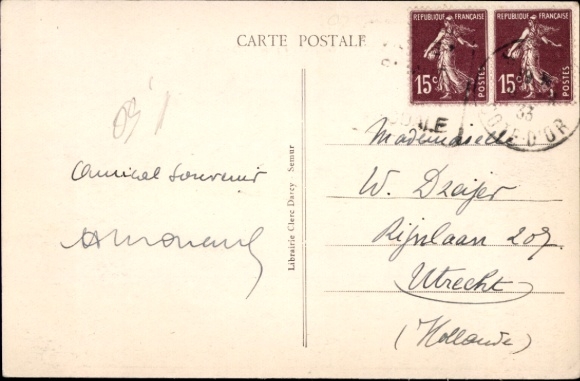 CARTE POSTALE
REPUBLIQUE FRANÇAISE
15c POSTES
REPUBLIQUE FRANÇAISE
15c POSTES
33
COTE-D'OR
Amical souvenir
Librairie Clerc Darcy - Semur
Mademoiselle
W. Dzaijer
Rijnlaan 207
Utrecht
(Hollande)